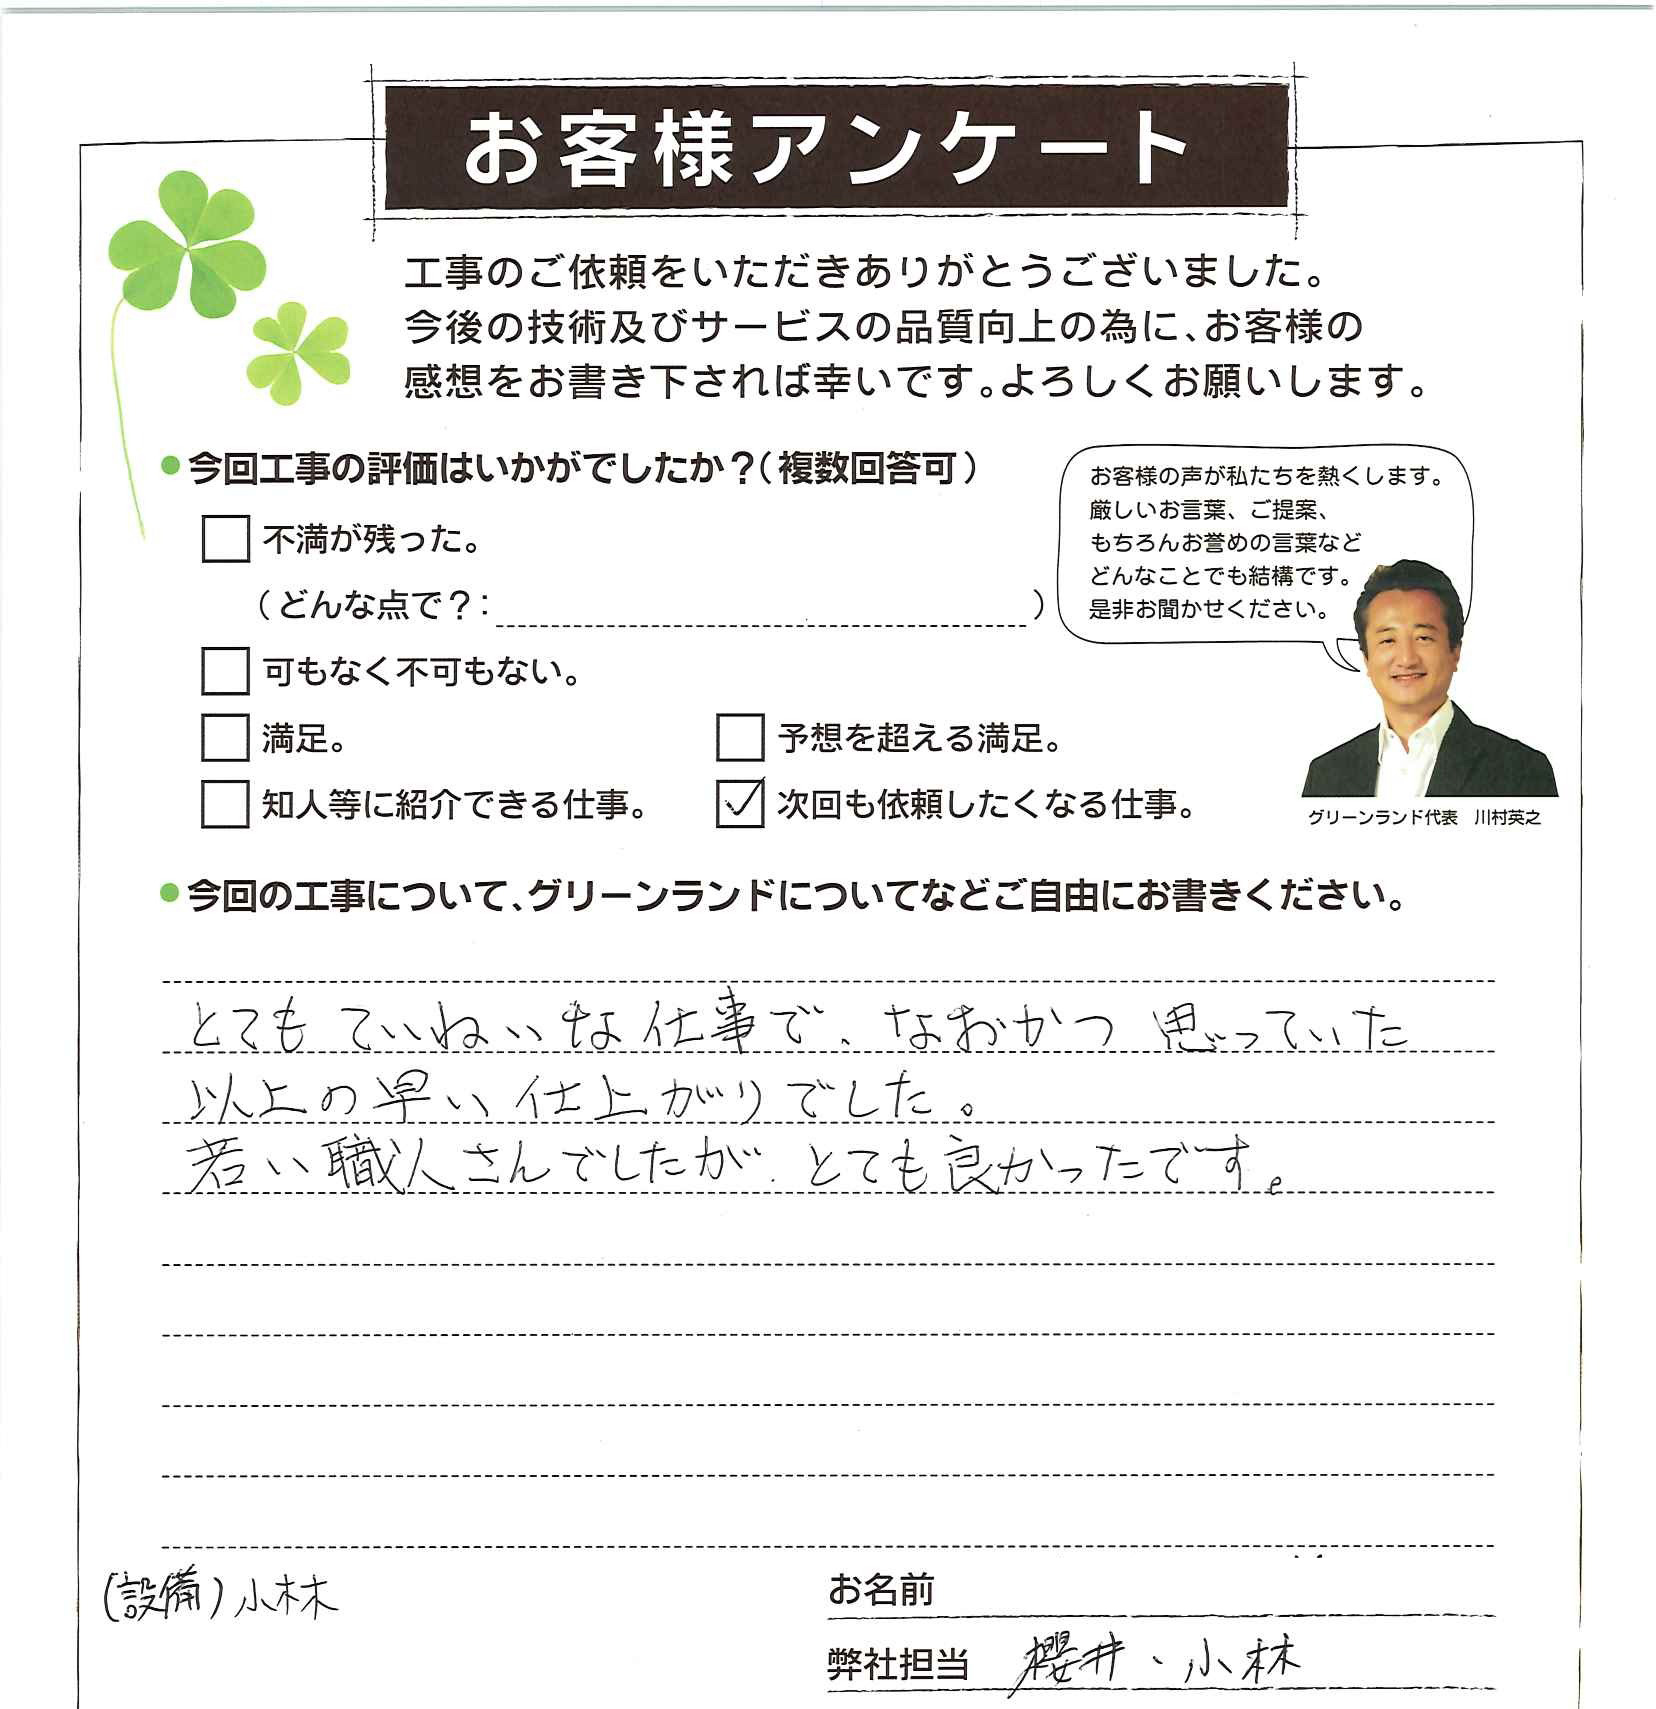 お客様アンケート
工事のご依頼をいただきありがとうございました。
今後の技術及びサービスの品質向上の為に、お客様の
感想をお書き下されば幸いです。よろしくお願いします。
●今回工事の評価はいかがでしたか？（複数回答可）
お客様の声が私たちを熱くします。
厳しいお言葉、ご提案、
もちろんお誉めの言葉など
どんなことでも結構です。
是非お聞かせください。
不満が残った。
（どんな点で？：　）
可もなく不可もない。
満足。
予想を超える満足。
知人等に紹介できる仕事。
次回も依頼したくなる仕事。
グリーンランド代表　川村英之
●今回の工事について、グリーンランドについてなどご自由にお書きください。
とても ていねいな仕事で、なおかつ 思っていた
以上の早い仕上がりでした。
若い職人さんでしたが、とても良かったです。
(設備)小林
お名前
弊社担当　櫻井、小林